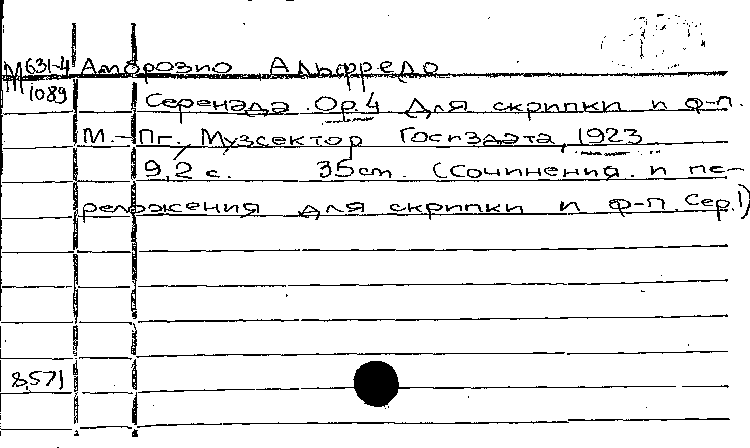 М631-4 Амброзио Альфредо
1089 Серенада. Op.4 Для скрипки и ф-п.
М.-Пг., Музсектор Госиздата, 1923
9,2 с. 35cm. (Сочинения и пе-
реложения для скрипки и ф-п. Сер.1)
8571